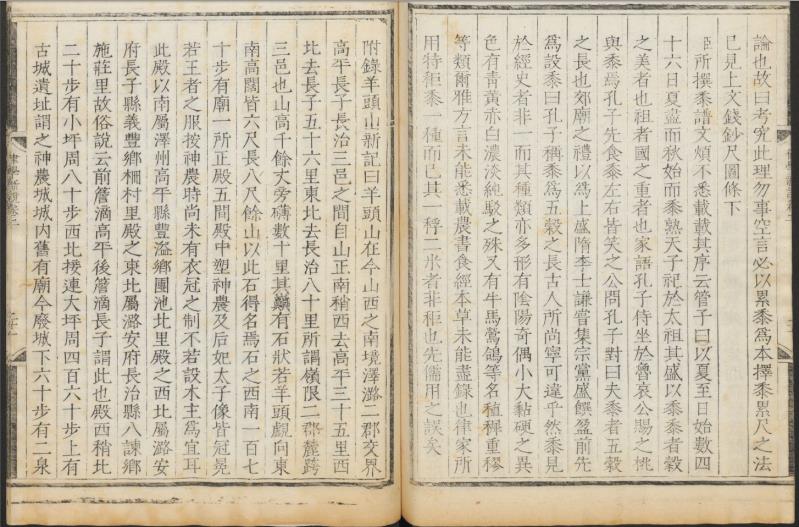 論也故曰考究此理勿事空言必以累黍爲本擇黍累尺之法
已見上文錢鈔尺圖條下
臣所撰黍譜文煩不悉載載其序云管子曰以夏至日始數四
十六日夏盡而秋始而黍熟天子祀於太祖其盛以黍黍者穀
之美者也祖者國之重者也家語孔子侍坐於魯哀公賜之桃
與黍焉孔子先食黍左右皆笑之公問孔子對曰夫黍者五穀
之長也郊廟之禮以爲上盛隋李士謙嘗集宗黨盛饌盈前先
爲設黍曰孔子稱黍爲五穀之長古人所尚寧可違乎然黍見
於經史者非一而其種類亦多形有陰陽奇偶小大黏硬之異
色有青黃赤白濃淡純駁之殊又有牛馬鴽鴿等名稙稺重穋
等類爾雅方言未能悉載農書食經本草未能盡録也律家所
用特秬黍一種而已其一稃二米者非秬也先儒用之誤矣
附錄羊頭山新記曰羊頭山在今山西之南境澤潞二郡交界
高平長子長治三邑之間自山正南稍西去高平三十五里西
北去長子五十六里東北去長治八十里所謂嶺限二郡麓跨
三邑也山高千餘丈旁礡數十里其巔有石狀若羊頭覷向東
南高闊皆六尺長八尺餘山以此石得名焉石之西南一百七
十步有廟一所正殿五間殿中塑神農及后妃太子像皆冠冕
若王者之服按神農時尚未有衣冠之制不若設木主爲宜耳
此殿以南屬澤州高平縣豊溢鄉團池北里殿之西北屬潞安
府長子縣義豐鄉柵村里殿之東北屬潞安府長治縣八諫鄉
施莊里故俗說云前簷滴高平後簷滴長子謂此也殿西稍北
二十步有小坪周八十步西北接連大坪周四百六十步上有
古城遺址謂之神農城城內舊有廟今廢城下六十步有二泉